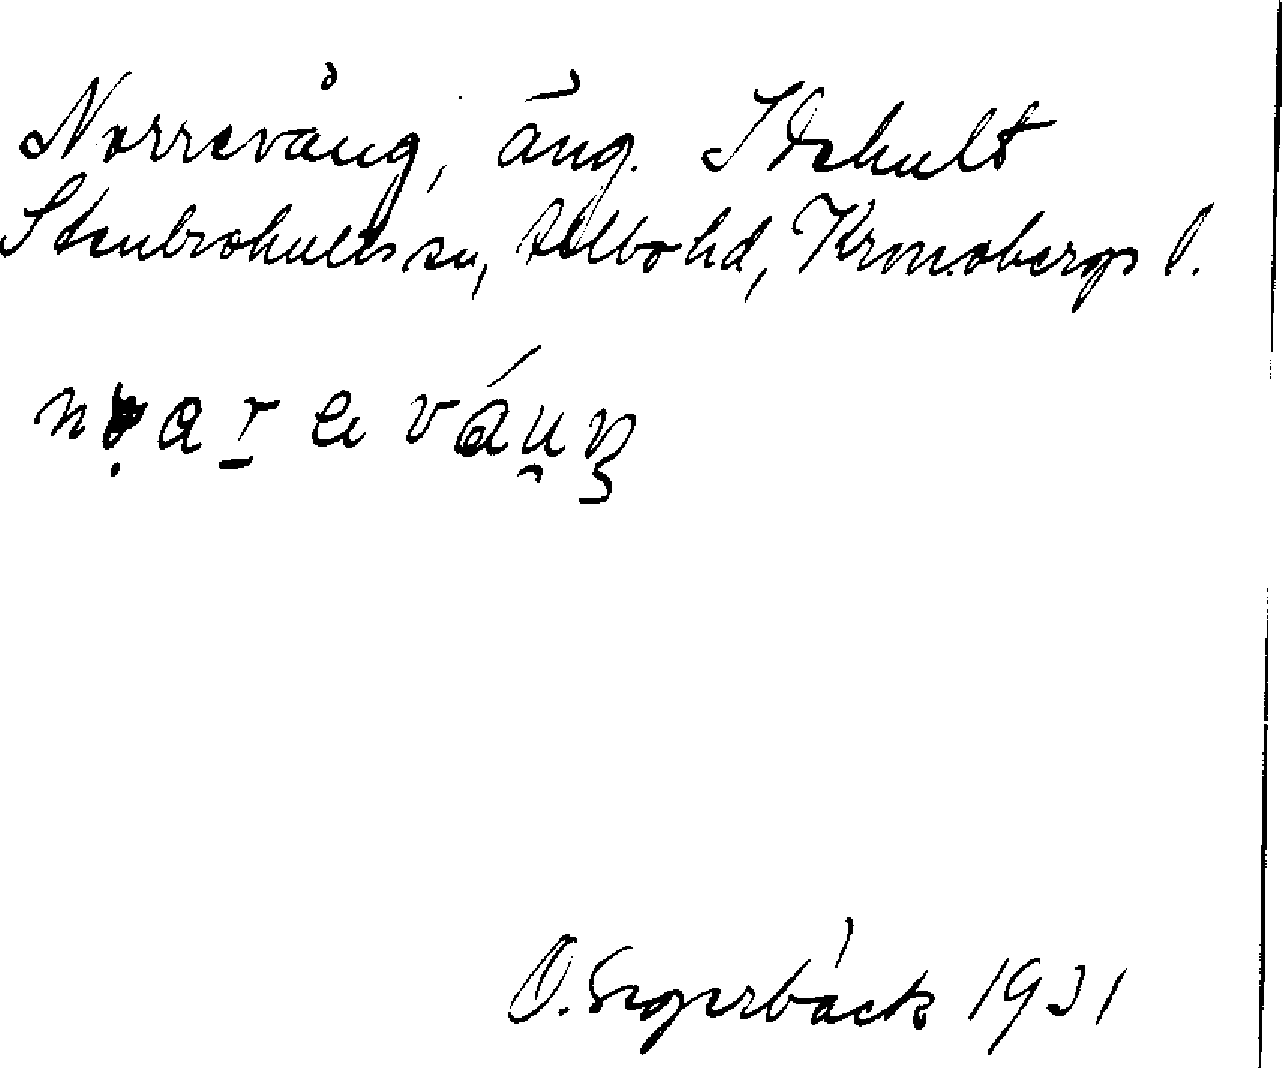 Norrevång, äng. Idekult
Stenbrohults sn, Allbo hd, Kronobergs l.
O. Segerbäck 1931